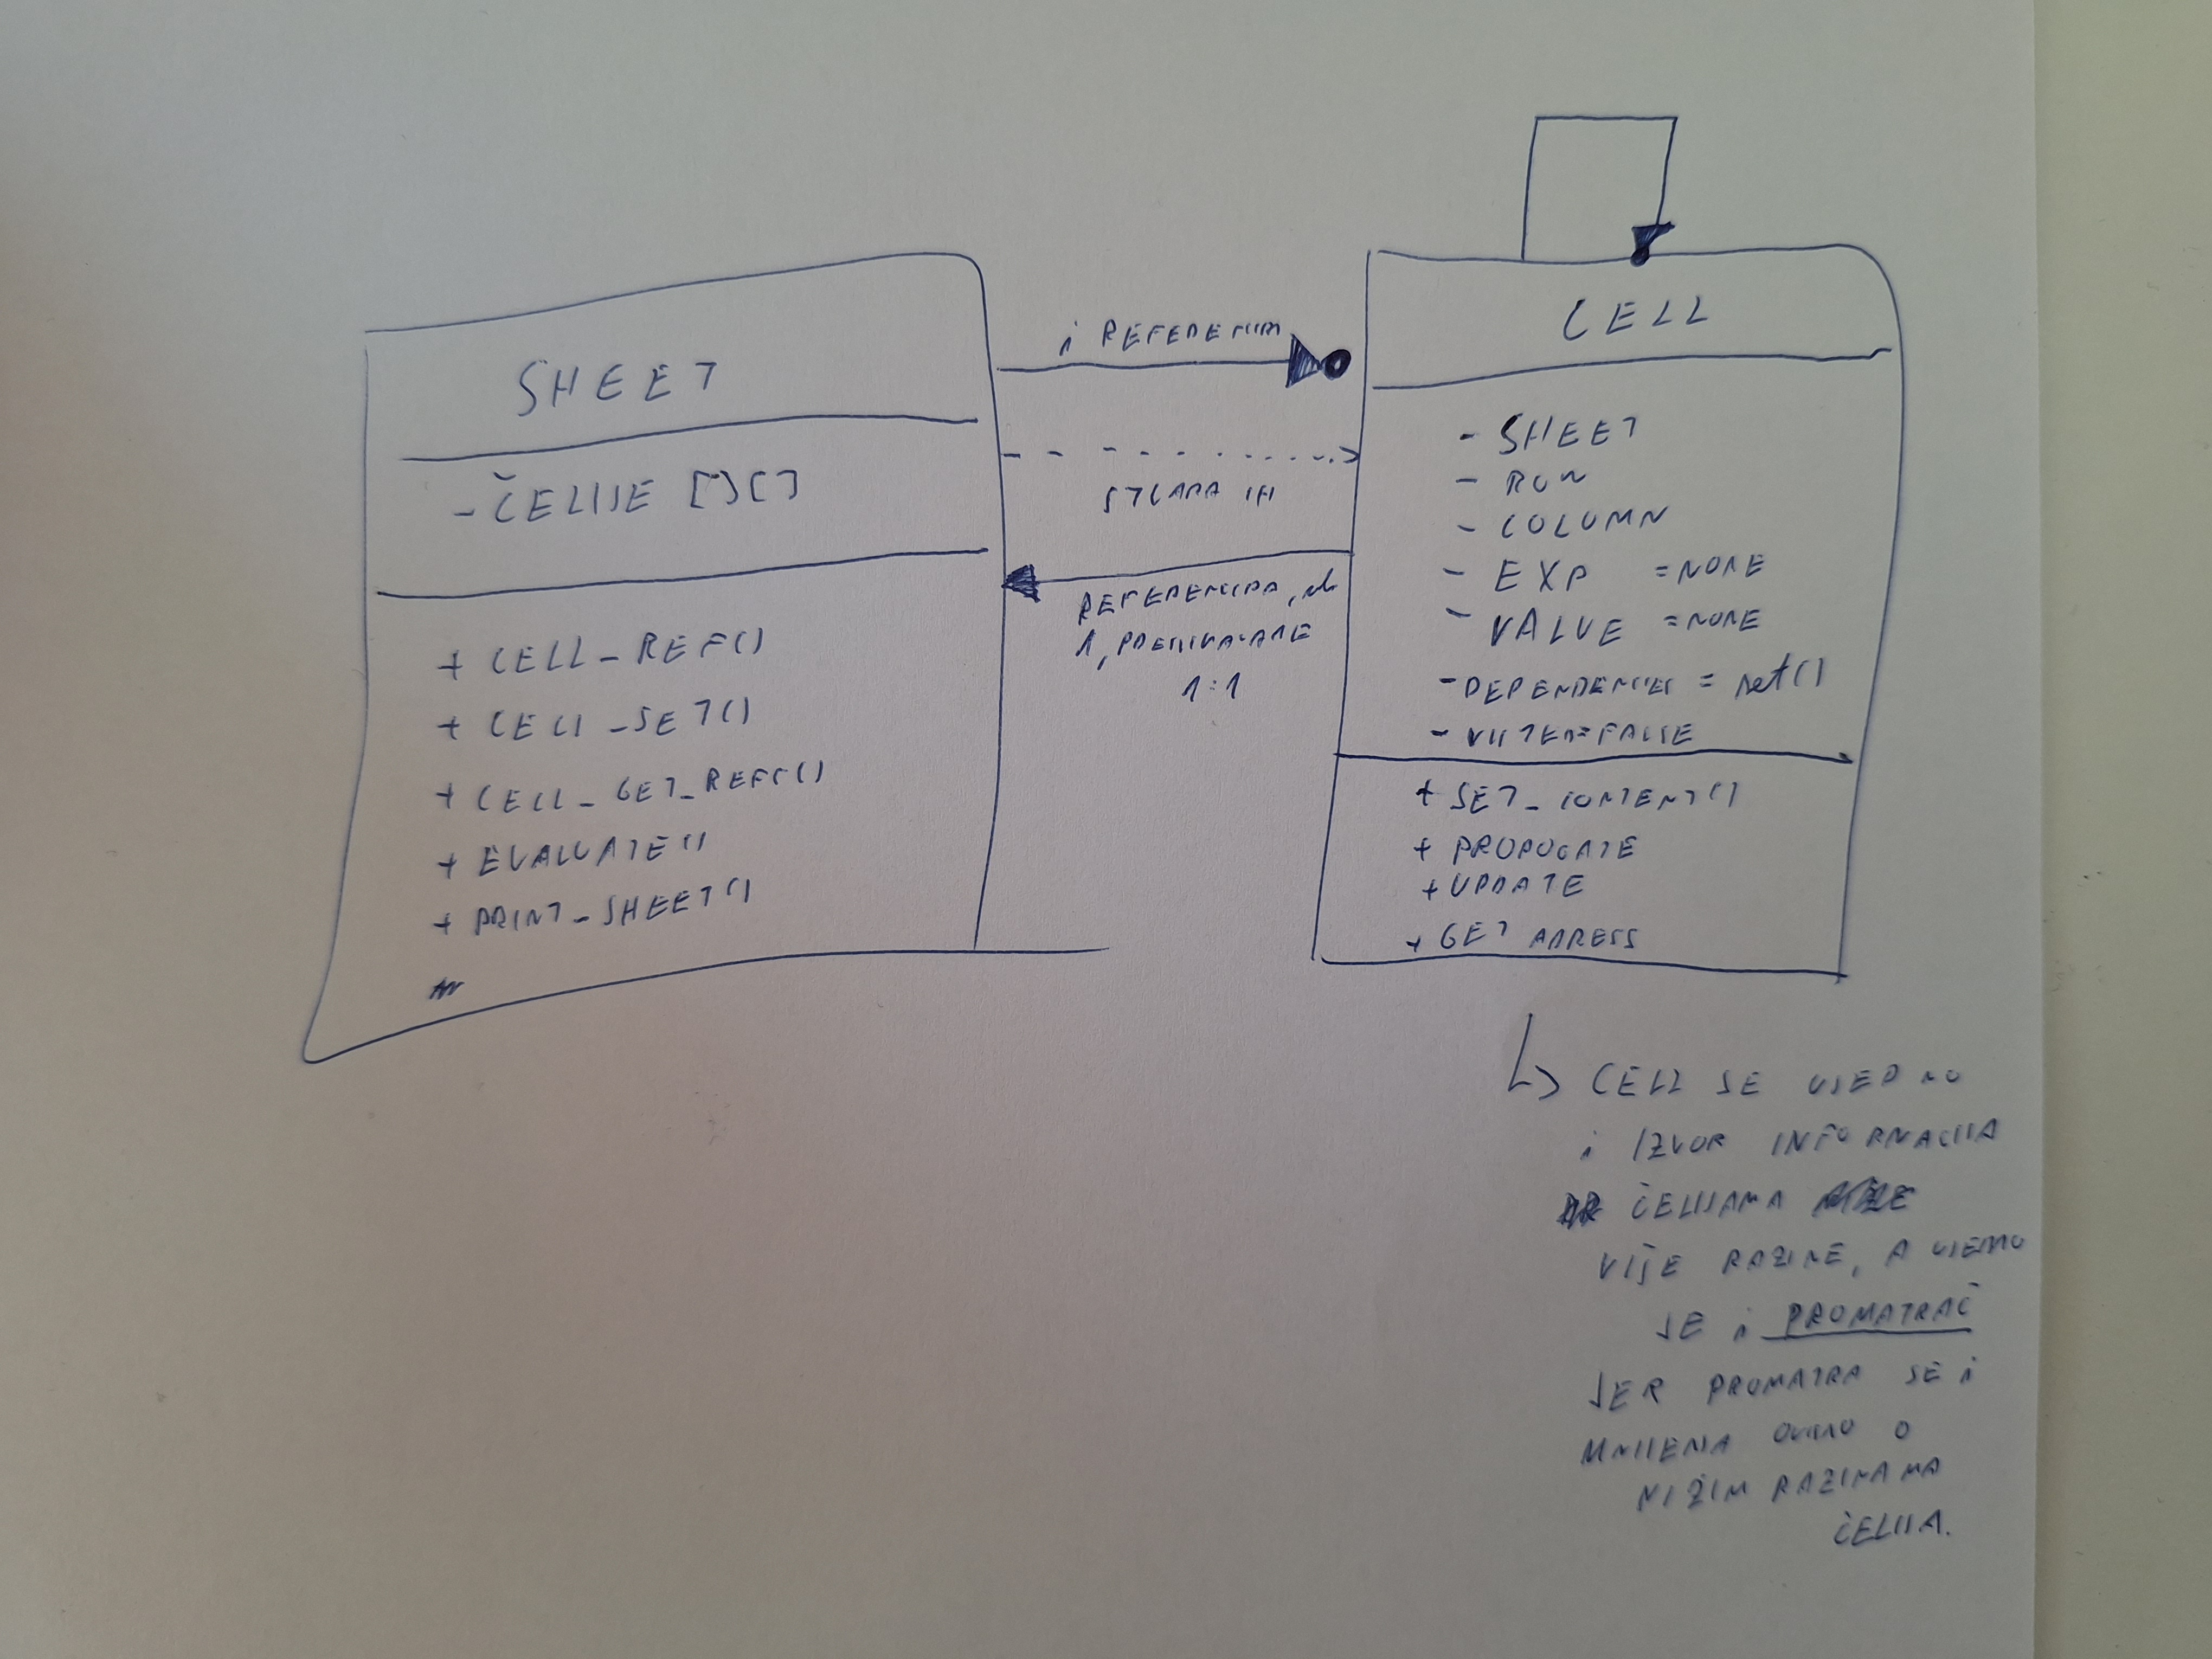 SHEET
- ČELIJE [][]
+ CELL_REF()
+ CELL_SET()
+ CELL_GET_REFS()
+ EVALUATE()
+ PRINT_SHEET()
i REFERENCIRA
STVARA IH
REFERENCIRA,
1,
1:1
CELL
- SHEET
- ROW
- COLUMN
- EXP = NONE
- VALUE = NONE
- DEPENDENCIES = set()
- VISITED=FALSE
+ SET_CONTENT()
+ PROPOGATE
+ UPDATE
+ GET ADRESS
↳ CELL JE UJEDNO
i IZVOR INFORMACIJA
ČELIJAMA
VIŠE RAZINE, A UJEDNO
JE i PROMATRAČ
JER PROMATRA SE i
MNIJENJA OVISNO O
NIŽIM RAZINAMA
ČELIJA.